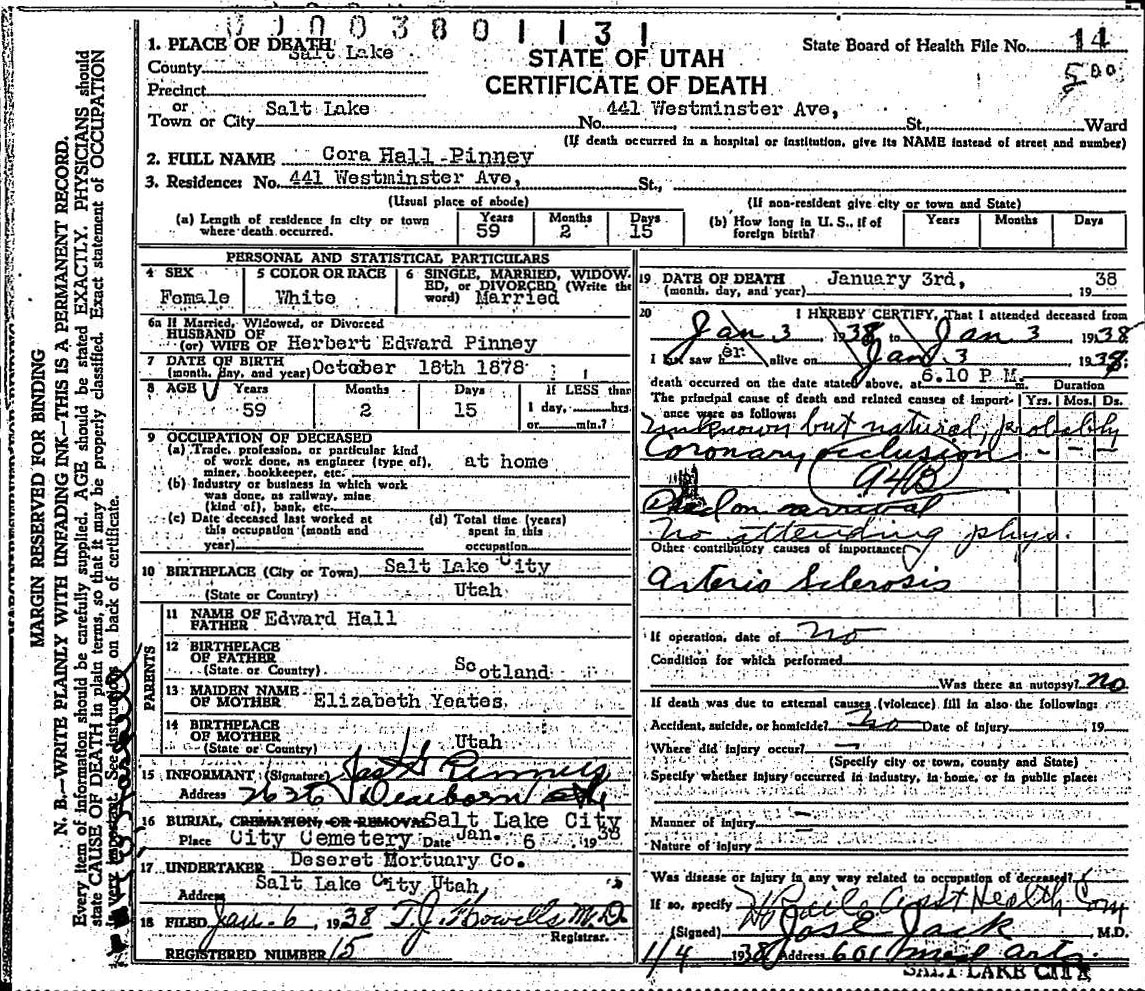 0 J 0 0 3 8 0 1 1 3 1
1. PLACE OF DEATH
County Salt Lake
STATE OF UTAH
CERTIFICATE OF DEATH
State Board of Health File No. 14
5.00
Precinct
or
Town or City Salt Lake No. 441 Westminster Ave, St., Ward
(If death occurred in a hospital or institution, give its NAME instead of street and number)
2. FULL NAME Cora Hall Pinney
3. Residence: No. 441 Westminster Ave, St.,
(Usual place of abode) (If non-resident give city or town and State)
(a) Length of residence in city or town where death occurred. Years 59 Months 2 Days 15
(b) How long in U. S., if of foreign birth? Years Months Days
MARGIN RESERVED FOR BINDING
N. B.—WRITE PLAINLY WITH UNFADING INK—THIS IS A PERMANENT RECORD.
Every item of information should be carefully supplied. AGE should be stated EXACTLY. PHYSICIANS should
state CAUSE OF DEATH in plain terms, so that it may be properly classified. Exact statement of OCCUPATION
is very important. See instructions on back of certificate.
PERSONAL AND STATISTICAL PARTICULARS
4 SEX Female
5 COLOR OR RACE White
6 SINGLE, MARRIED, WIDOWED, or DIVORCED (Write the word) Married
6a If Married, Widowed, or Divorced
HUSBAND OF
(or) WIFE OF Herbert Edward Pinney
7 DATE OF BIRTH
(month, day, and year) October 18th 1878
8 AGE Years 59 Months 2 Days 15
If LESS than
1 day, hrs.
or min.?
9 OCCUPATION OF DECEASED
(a) Trade, profession, or particular kind
of work done, as engineer (type of),
miner, bookkeeper, etc. at home
(b) Industry or business in which work
was done, as railway, mine
(kind of), bank, etc.
(c) Date deceased last worked at
this occupation (month and
year)
(d) Total time (years)
spent in this
occupation
10 BIRTHPLACE (City or Town) Salt Lake City
(State or Country) Utah
PARENTS
11 NAME OF FATHER Edward Hall
12 BIRTHPLACE OF FATHER
(State or Country) Scotland
13 MAIDEN NAME OF MOTHER Elizabeth Yeates
14 BIRTHPLACE OF MOTHER
(State or Country) Utah
15 INFORMANT (Signature) Jas G Pinney
Address 2636 Dearborn
16 BURIAL, CREMATION, OR REMOVAL Salt Lake City
Place City Cemetery Date Jan. 6 1938
17 UNDERTAKER Deseret Mortuary Co.
Address Salt Lake City Utah
18 FILED Jan. 6, 1938 T. J. Howells M.D.
Registrar.
REGISTERED NUMBER 15
19 DATE OF DEATH
(month, day, and year) January 3rd, 1938
20 I HEREBY CERTIFY, That I attended deceased from
Jan 3 1938 to Jan 3 1938
I last saw her alive on Jan 3 1938;
death occurred on the date stated above, at 6.10 P M. m.
Duration
The principal cause of death and related causes of importance were as follows: Yrs. Mos. Ds.
Unknown but natural, probably
Coronary occlusion - - -
94B
Died on arrival
No attending phys.
Other contributory causes of importance
Arterio Sclerosis
If operation, date of no
Condition for which performed
Was there an autopsy? no
If death was due to external causes (violence) fill in also the following:
Accident, suicide, or homicide? no Date of injury 19
Where did injury occur? —
(Specify city or town, county and State)
Specify whether injury occurred in industry, in home, or in public place:
Manner of injury —
Nature of injury
Was disease or injury in any way related to occupation of deceased?
If so, specify Health Com
(Signed) Jos E Jack M.D.
1/4 1938 Address 601 Med Arts.
SALT LAKE CITY